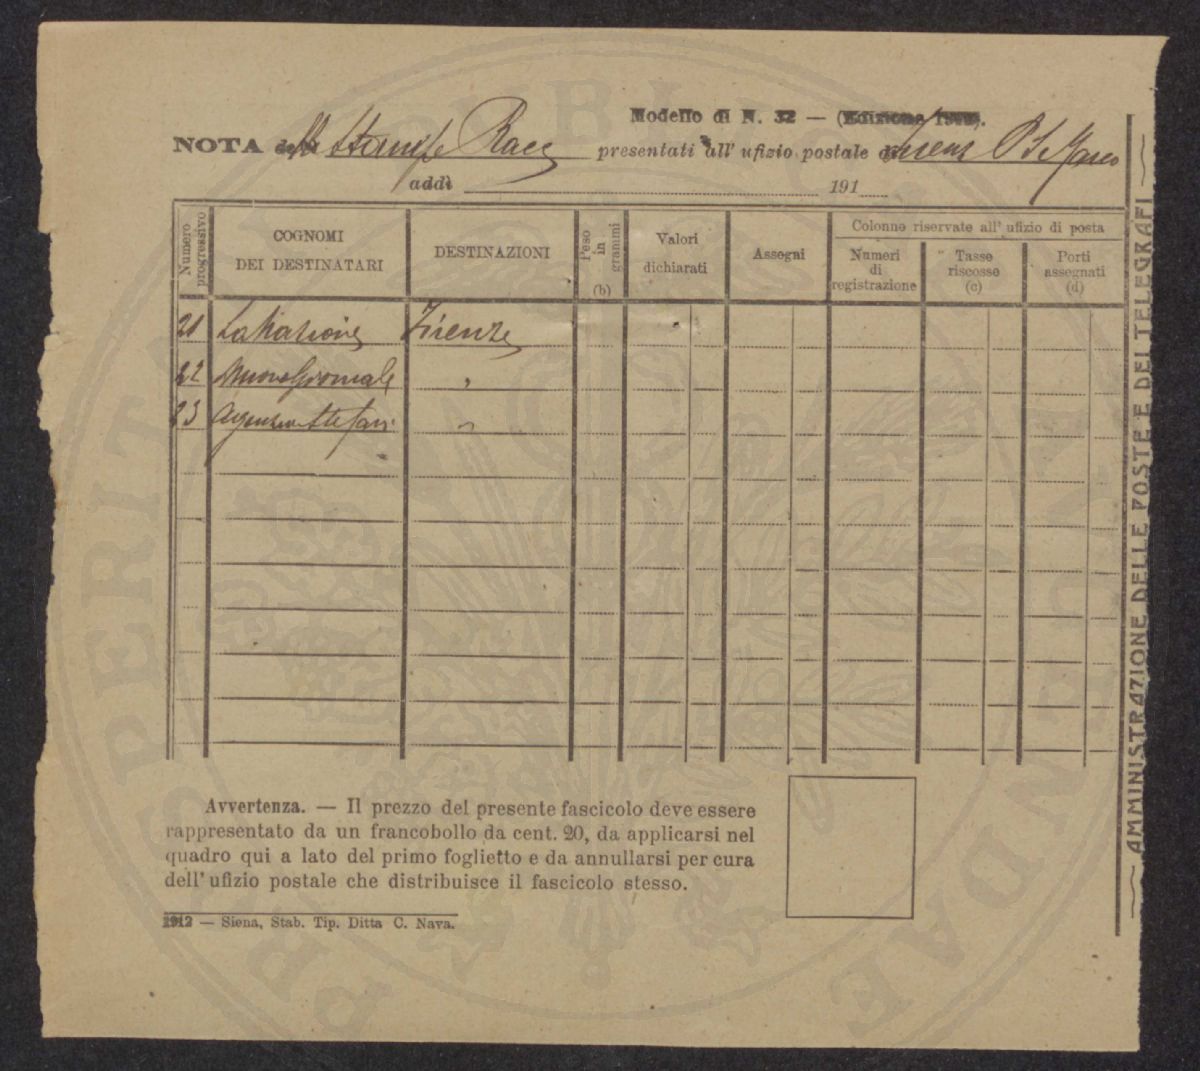 Modello di N. 32 — (Edizione
NOTA delle Stampe Racc presentati all' ufizio postale di
addì 191
Numero progressivo
COGNOMI
DEI DESTINATARI
DESTINAZIONI
Peso in grammi (b)
Valori
dichiarati
Assegni
Colonne riservate all' ufizio di posta
Numeri
di
registrazione
Tasse
riscosse
(c)
Porti
assegnati
(d)
21 La Nazione Firenze
22 Nuovo Giornale "
23 Agenzia Stefani "
Avvertenza. — Il prezzo del presente fascicolo deve essere
rappresentato da un francobollo da cent. 20, da applicarsi nel
quadro qui a lato del primo foglietto e da annullarsi per cura
dell' ufizio postale che distribuisce il fascicolo stesso.
1912 — Siena, Stab. Tip. Ditta C. Nava.
AMMINISTRAZIONE DELLE POSTE E DEI TELEGRAFI